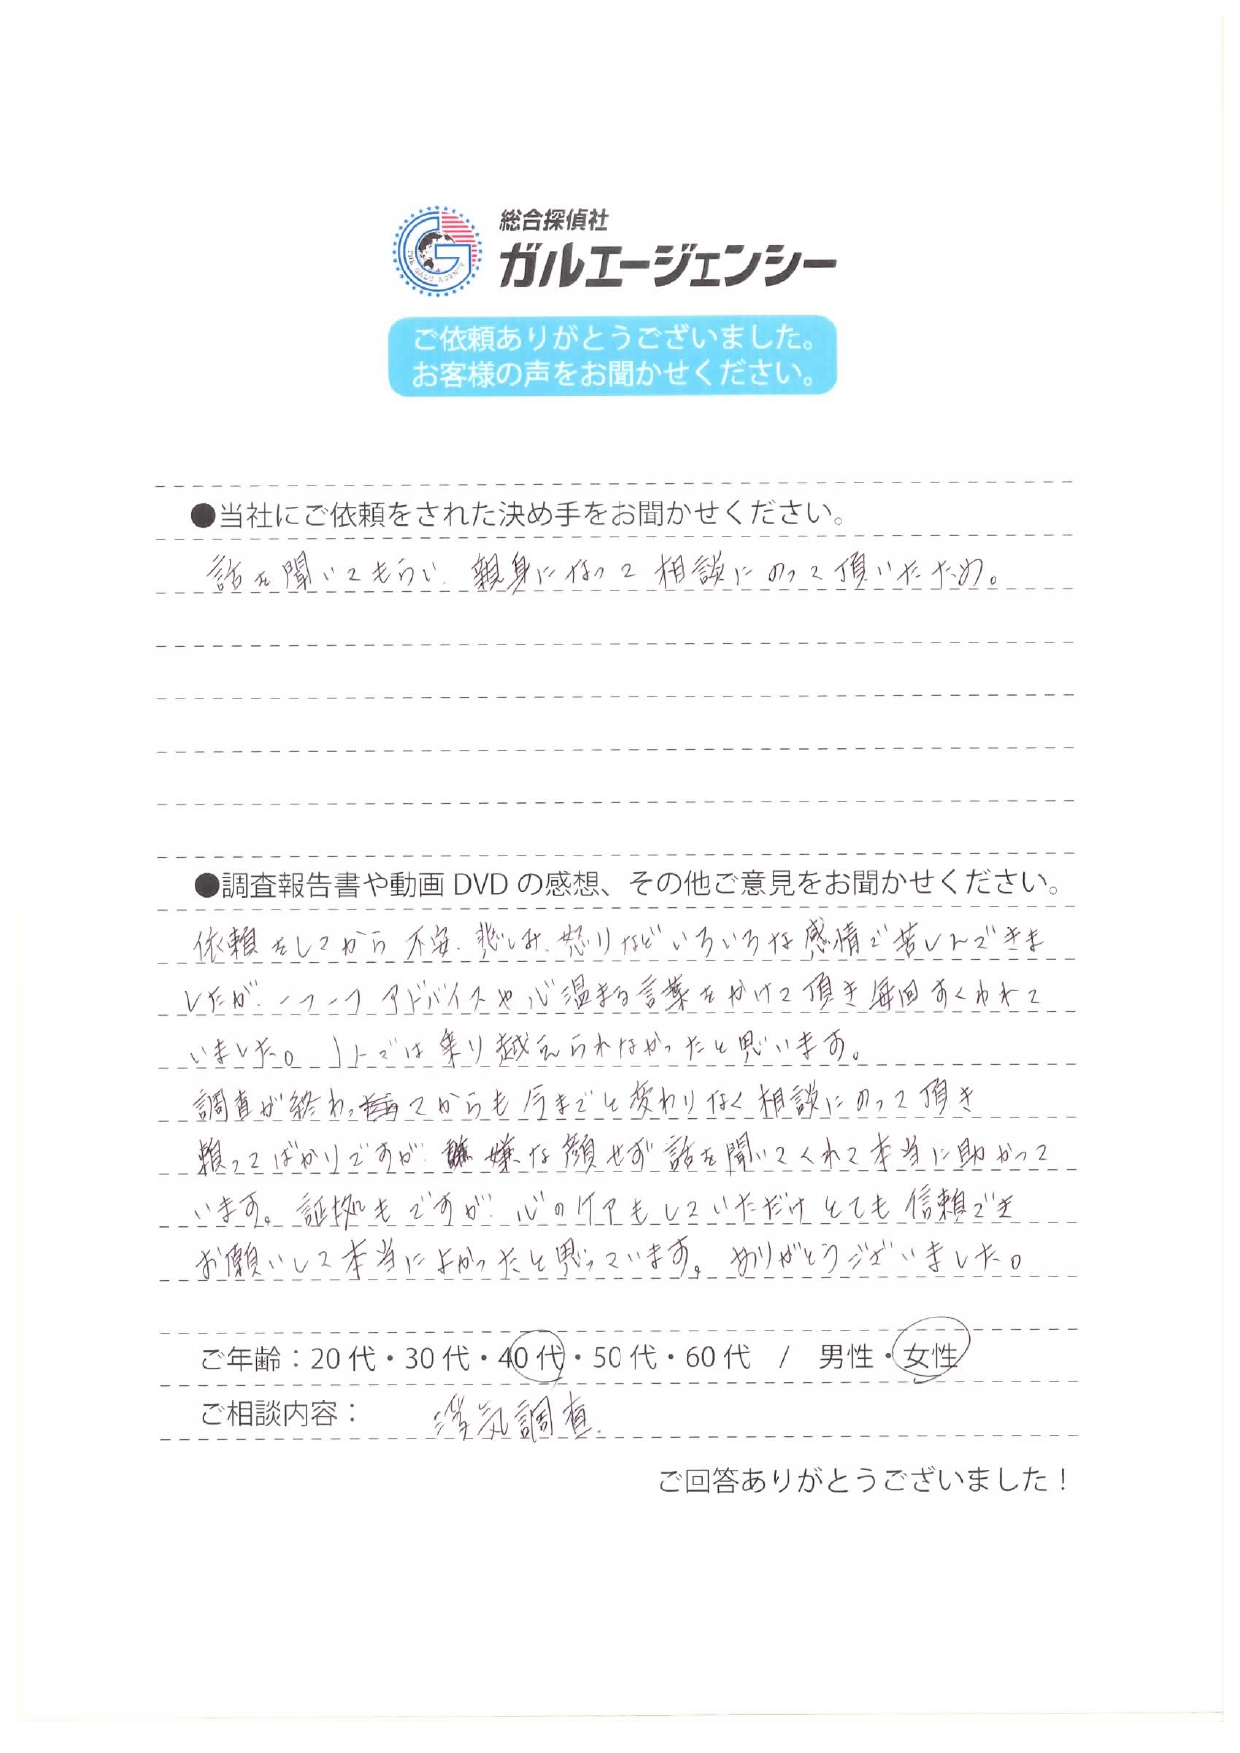 総合探偵社
ガルエージェンシー
THE GALU AGENCY
ご依頼ありがとうございました。
お客様の声をお聞かせください。
●当社にご依頼をされた決め手をお聞かせください。
話を聞いてもらい、親身になって相談にのって頂いたため。
●調査報告書や動画 DVD の感想、その他ご意見をお聞かせください。
依頼をしてから不安、悲しみ、怒りなどいろいろな感情で苦しんできま
したが、一つ一つアドバイスや心温まる言葉をかけて頂き毎回すくわれて
いました。1人では乗り越えられなかったと思います。
調査が終わってからも今までと変わりなく相談にのって頂き
頼ってばかりですが、嫌な顔せず話を聞いてくれて本当に助かって
います。証拠もですが、心のケアもしていただけとても信頼でき
お願いして本当によかったと思っています。ありがとうございました。
ご年齢：20 代・30 代・40 代・50 代・60 代 / 男性・女性
ご相談内容： 浮気調査
ご回答ありがとうございました！